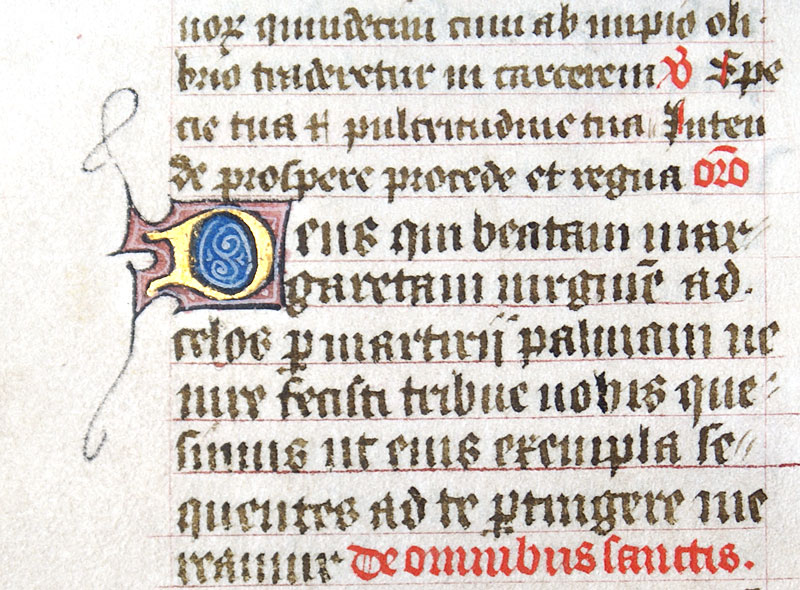 norꝝ quindecim cum ab impio oli-
brio traderetur in carcerem ꝟ Spe
cie tua ⁊ pulcritudine tua Inten
de prospere procede et regna oro̅
Deus qui beatam mar-
garetam uirgine̅ ad
celos ꝑ martirij palmam ue
nire fecisti tribue nobis que-
sumus ut eius exempla se-
quentes ad te ꝑtingere me
reamur De omnibus sanctis.